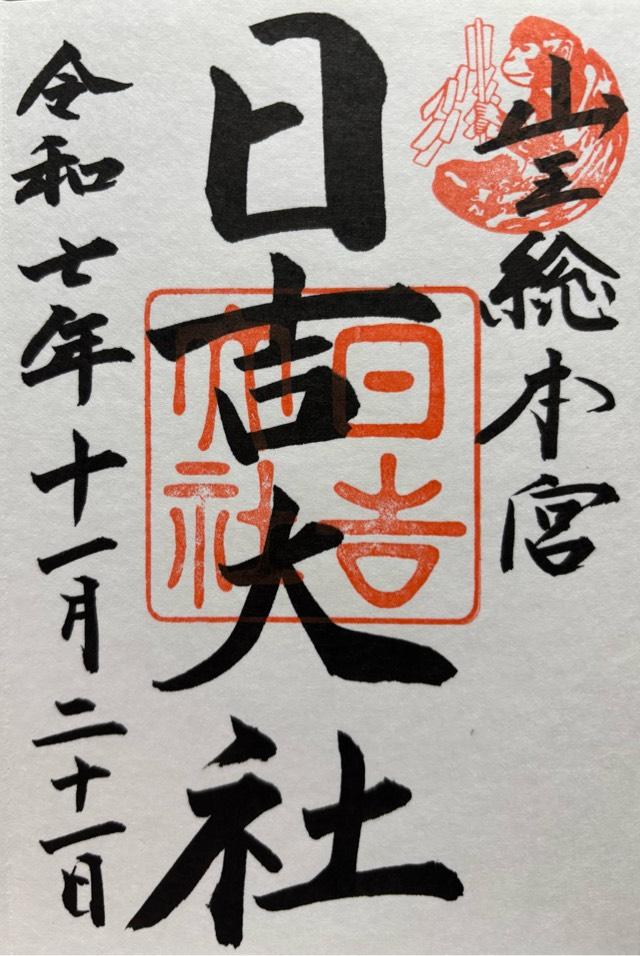 山王総本宮
日吉大社
日吉大社
令和七年十一月二十一日